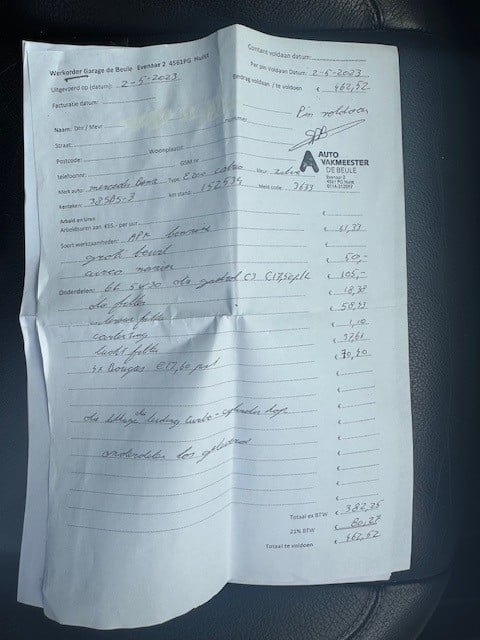 Werkorder Garage de Beule Evenaar 2 4561PG Hulst
Contant voldaan datum:
Uitgevoerd op (datum): 2-5-2023
Per pin voldaan Datum: 2-5-2023
Facturatie datum:
Bedrag voldaan / te voldoen € 462,52
Pin voldaan
Naam: Dhr / Mevr
Straat: nummer
Postcode: Woonplaats:
telefoonnr: GSM nr
AUTO
VAKMEESTER
DE BEULE
Evenaar 2
4561 PG Hulst
Merk auto: mercedes Benz Type: E 200 cabrio kleur zilver
Kenteken: km stand 152934 Meld code: 3633
Arbeid en Uren
Arbeidsuren aan €55,- per uur
Soort werkzaamheden: APK benzine € 41,33
groot beurt € 50,-
airco €
Onderdelen: 5W30 olie C3 €17,50 p/L € 105,-
olie filter € 18,38
interieur filter € 58,43
carterring € 1,10
lucht filter € 37,61
4x Bougies €17,60 p/st € 70,40
olie lekkage olie leiding turbo - cylinder kop
onderdelen los geleverd
Totaal ex BTW € 382,25
21% BTW € 80,27
Totaal te voldoen € 462,52